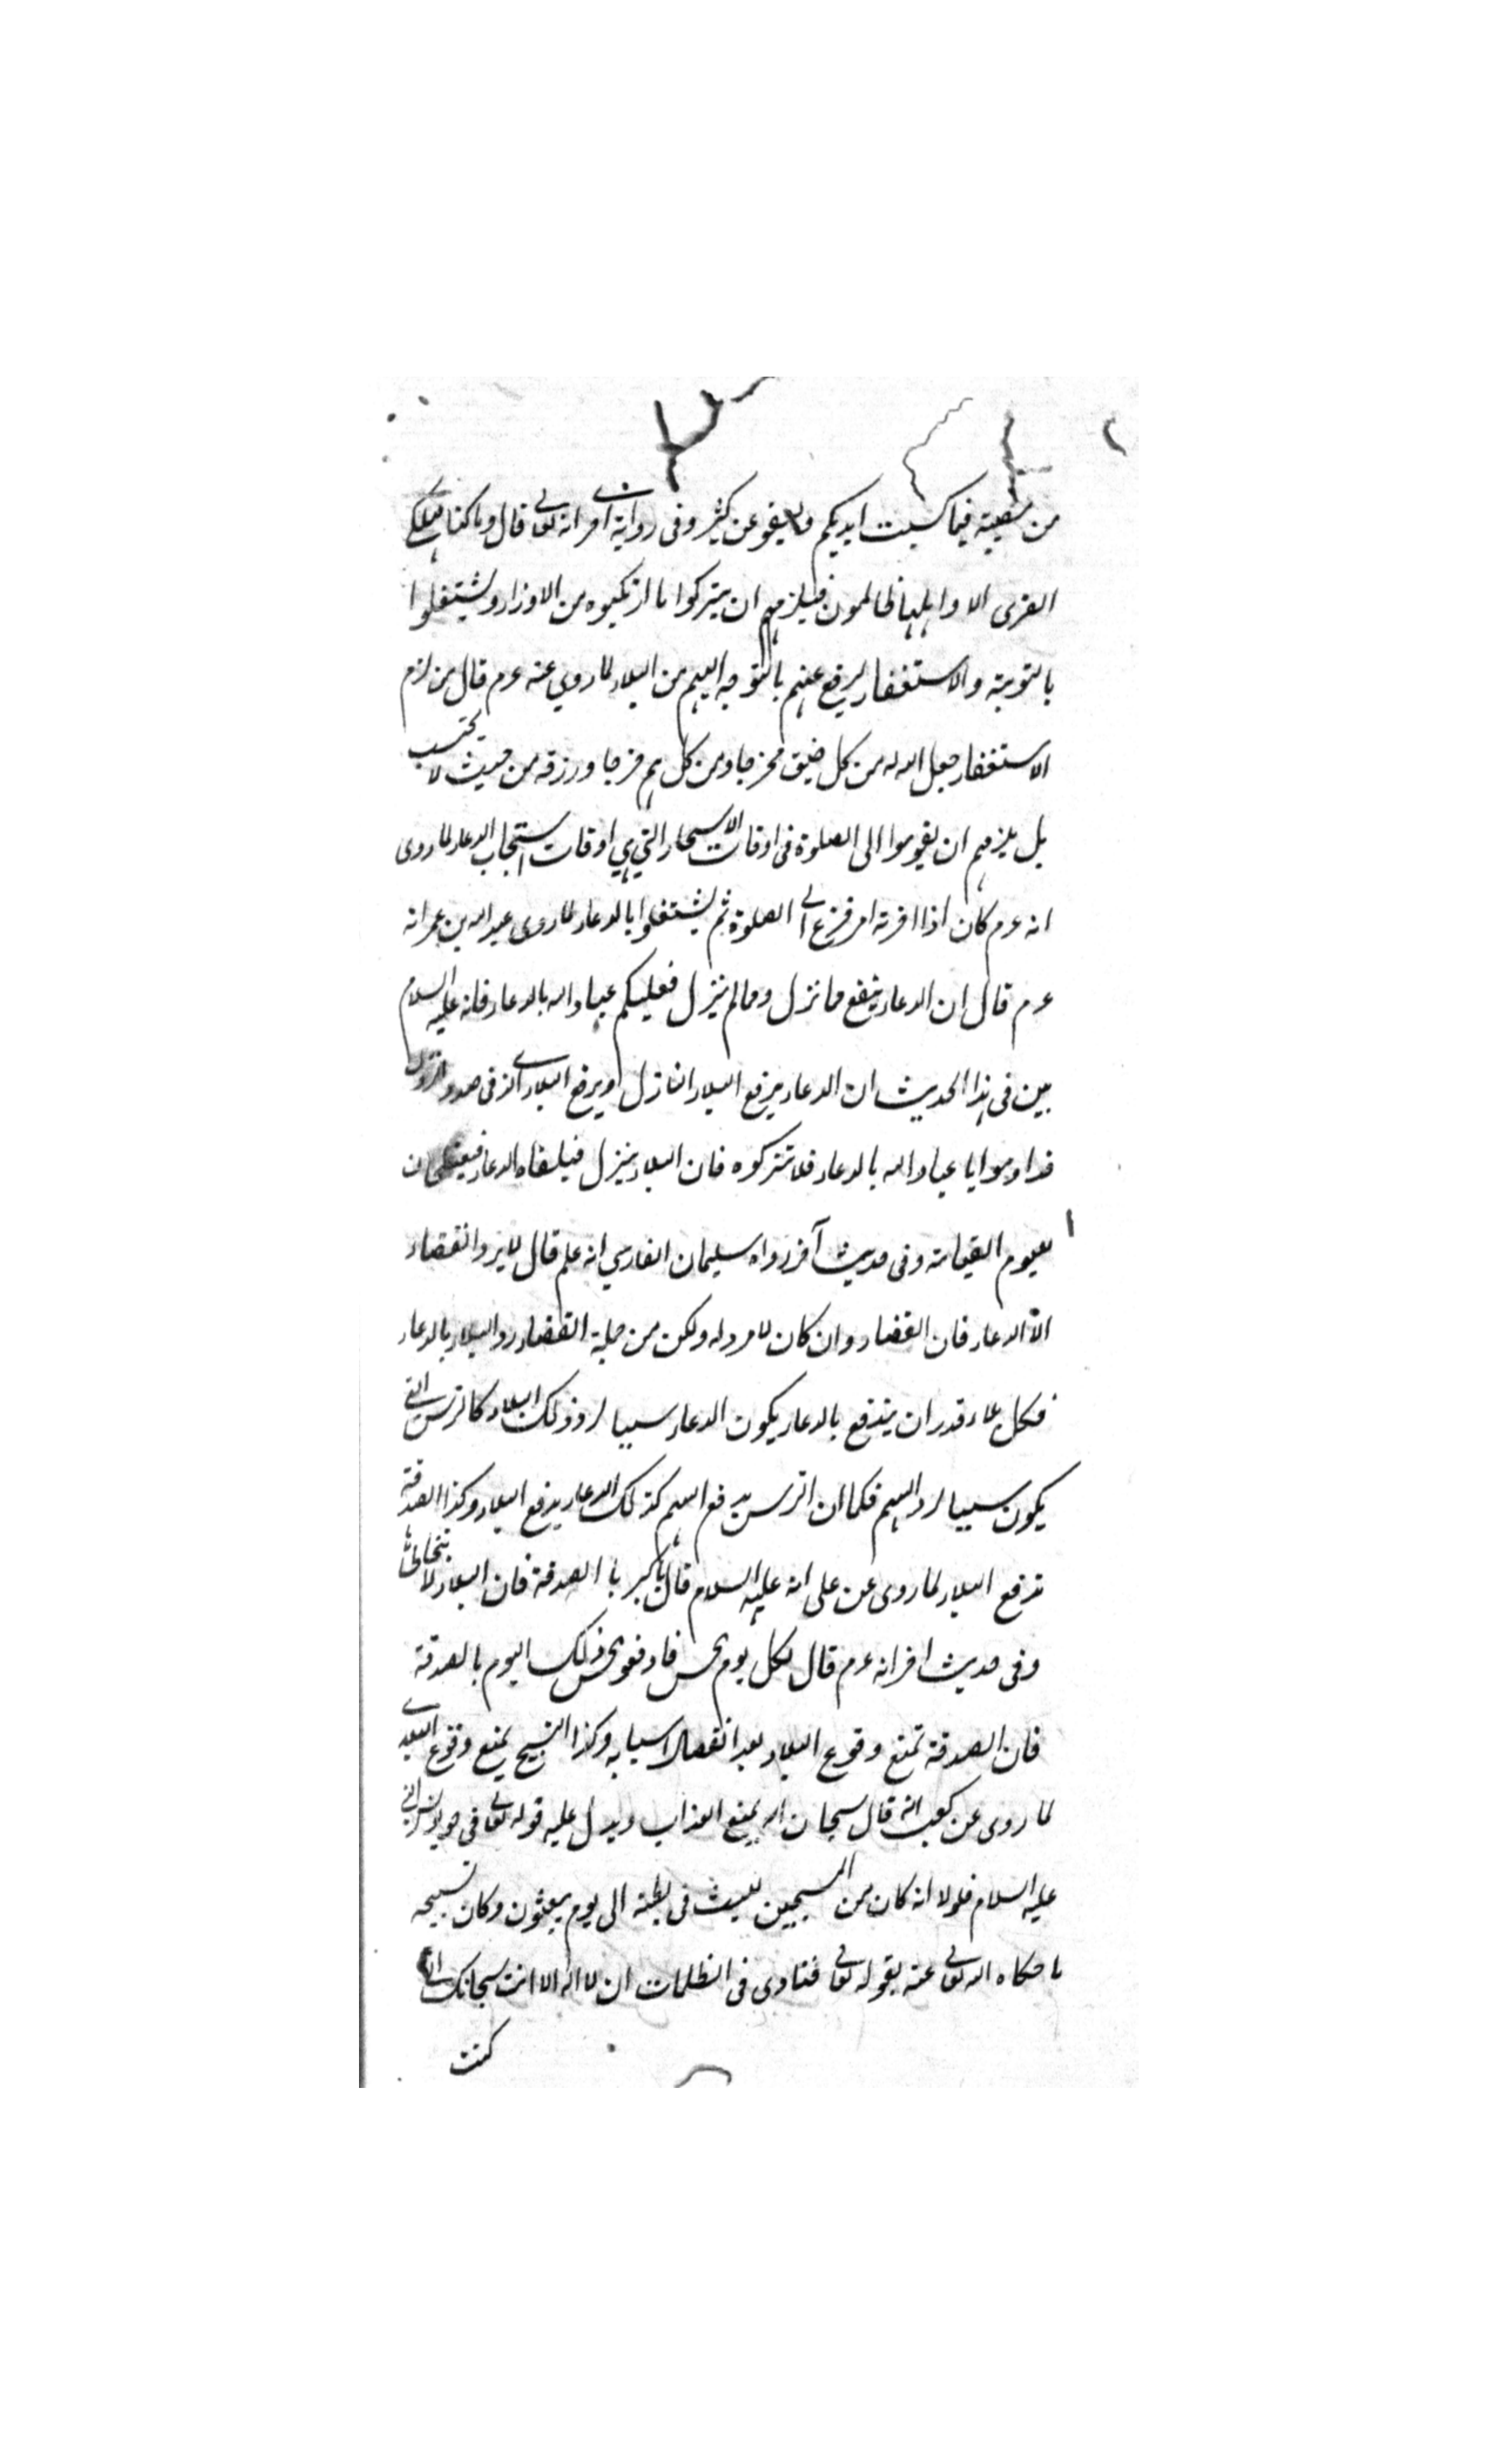 من مصيبة فيما كسبت ايديكم ويعفو عن كثير وفى رواية اخرى انه تعالى قال وما كنا مهلكى
القرى الا واهلها ظالمون فيلزمهم ان يتركوا ما ارتكبوه من الاوزار ويشتغلوا
بالتوبة والاستغفار ليرفع عنهم بالتوجه اليهم من البلاء لما روي عنه عرم قال من لزم
الاستغفار جعل الله له من كل ضيق مخرجا ومن كل هم فرجا ورزقه من حيث لا يحتسب
بل يلزمهم ان يقوموا الى الصلوة فى اوقات الاسحار التي هي اوقات استجاب الدعاء لما روى
انه عرم كان اذا احزنه امر فزع الى الصلوة ثم يشتغلوا بالدعاء لما روى عبد الله بن عمر انه
عرم قال ان الدعاء ينفع مما نزل ومما لم ينزل فعليكم عباد الله بالدعاء فانه عليه السلام
بين فى هذا الحديث ان الدعاء يرفع البلاء النازل ويرفع البلاء الذى فى صدد النزول
فداوموا يا عباد الله بالدعاء فلا تتركوه فان البلاء ينزل فيلقاه الدعاء فيعتلجان
ليوم القيامة وفى حديث آخر رواه سليمان الفارسي انه علم قال لا يرد القضاء
الا الدعاء فان القضاء وان كان لا مرد له ولكن من جملة القضاء رد البلاء بالدعاء
فكل بلاء قدر ان يندفع بالدعاء يكون الدعاء سببا لرد ذلك البلاء كالترس التى
يكون سببا لرد السهم فكما ان الترس يدفع السهم كذلك الدعاء يدفع البلاء وكذا الصدقة
تدفع البلاء لما روى عن على انه عليه السلام قال باكروا بالصدقة فان البلاء لا يتخطاها
وفى حديث اخر انه عرم قال لكل يوم نحس فادفعوا نحس ذلك اليوم بالصدقة
فان الصدقة تمنع وقوع البلاء بعد انعقاد اسبابه وكذا التسبيح يمنع وقوع البلاء
لما روى عن كعب انه قال سبحان الله يمنع العذاب ويدل عليه قوله تعالى فى حق يونس النبى
عليه السلام فلولا انه كان من المسبحين للبث فى بطنه الى يوم يبعثون وكان تسبيحه
ما حكاه الله تعالى عنه بقوله تعالى فنادى فى الظلمات ان لا اله الا انت سبحانك انى
كنت